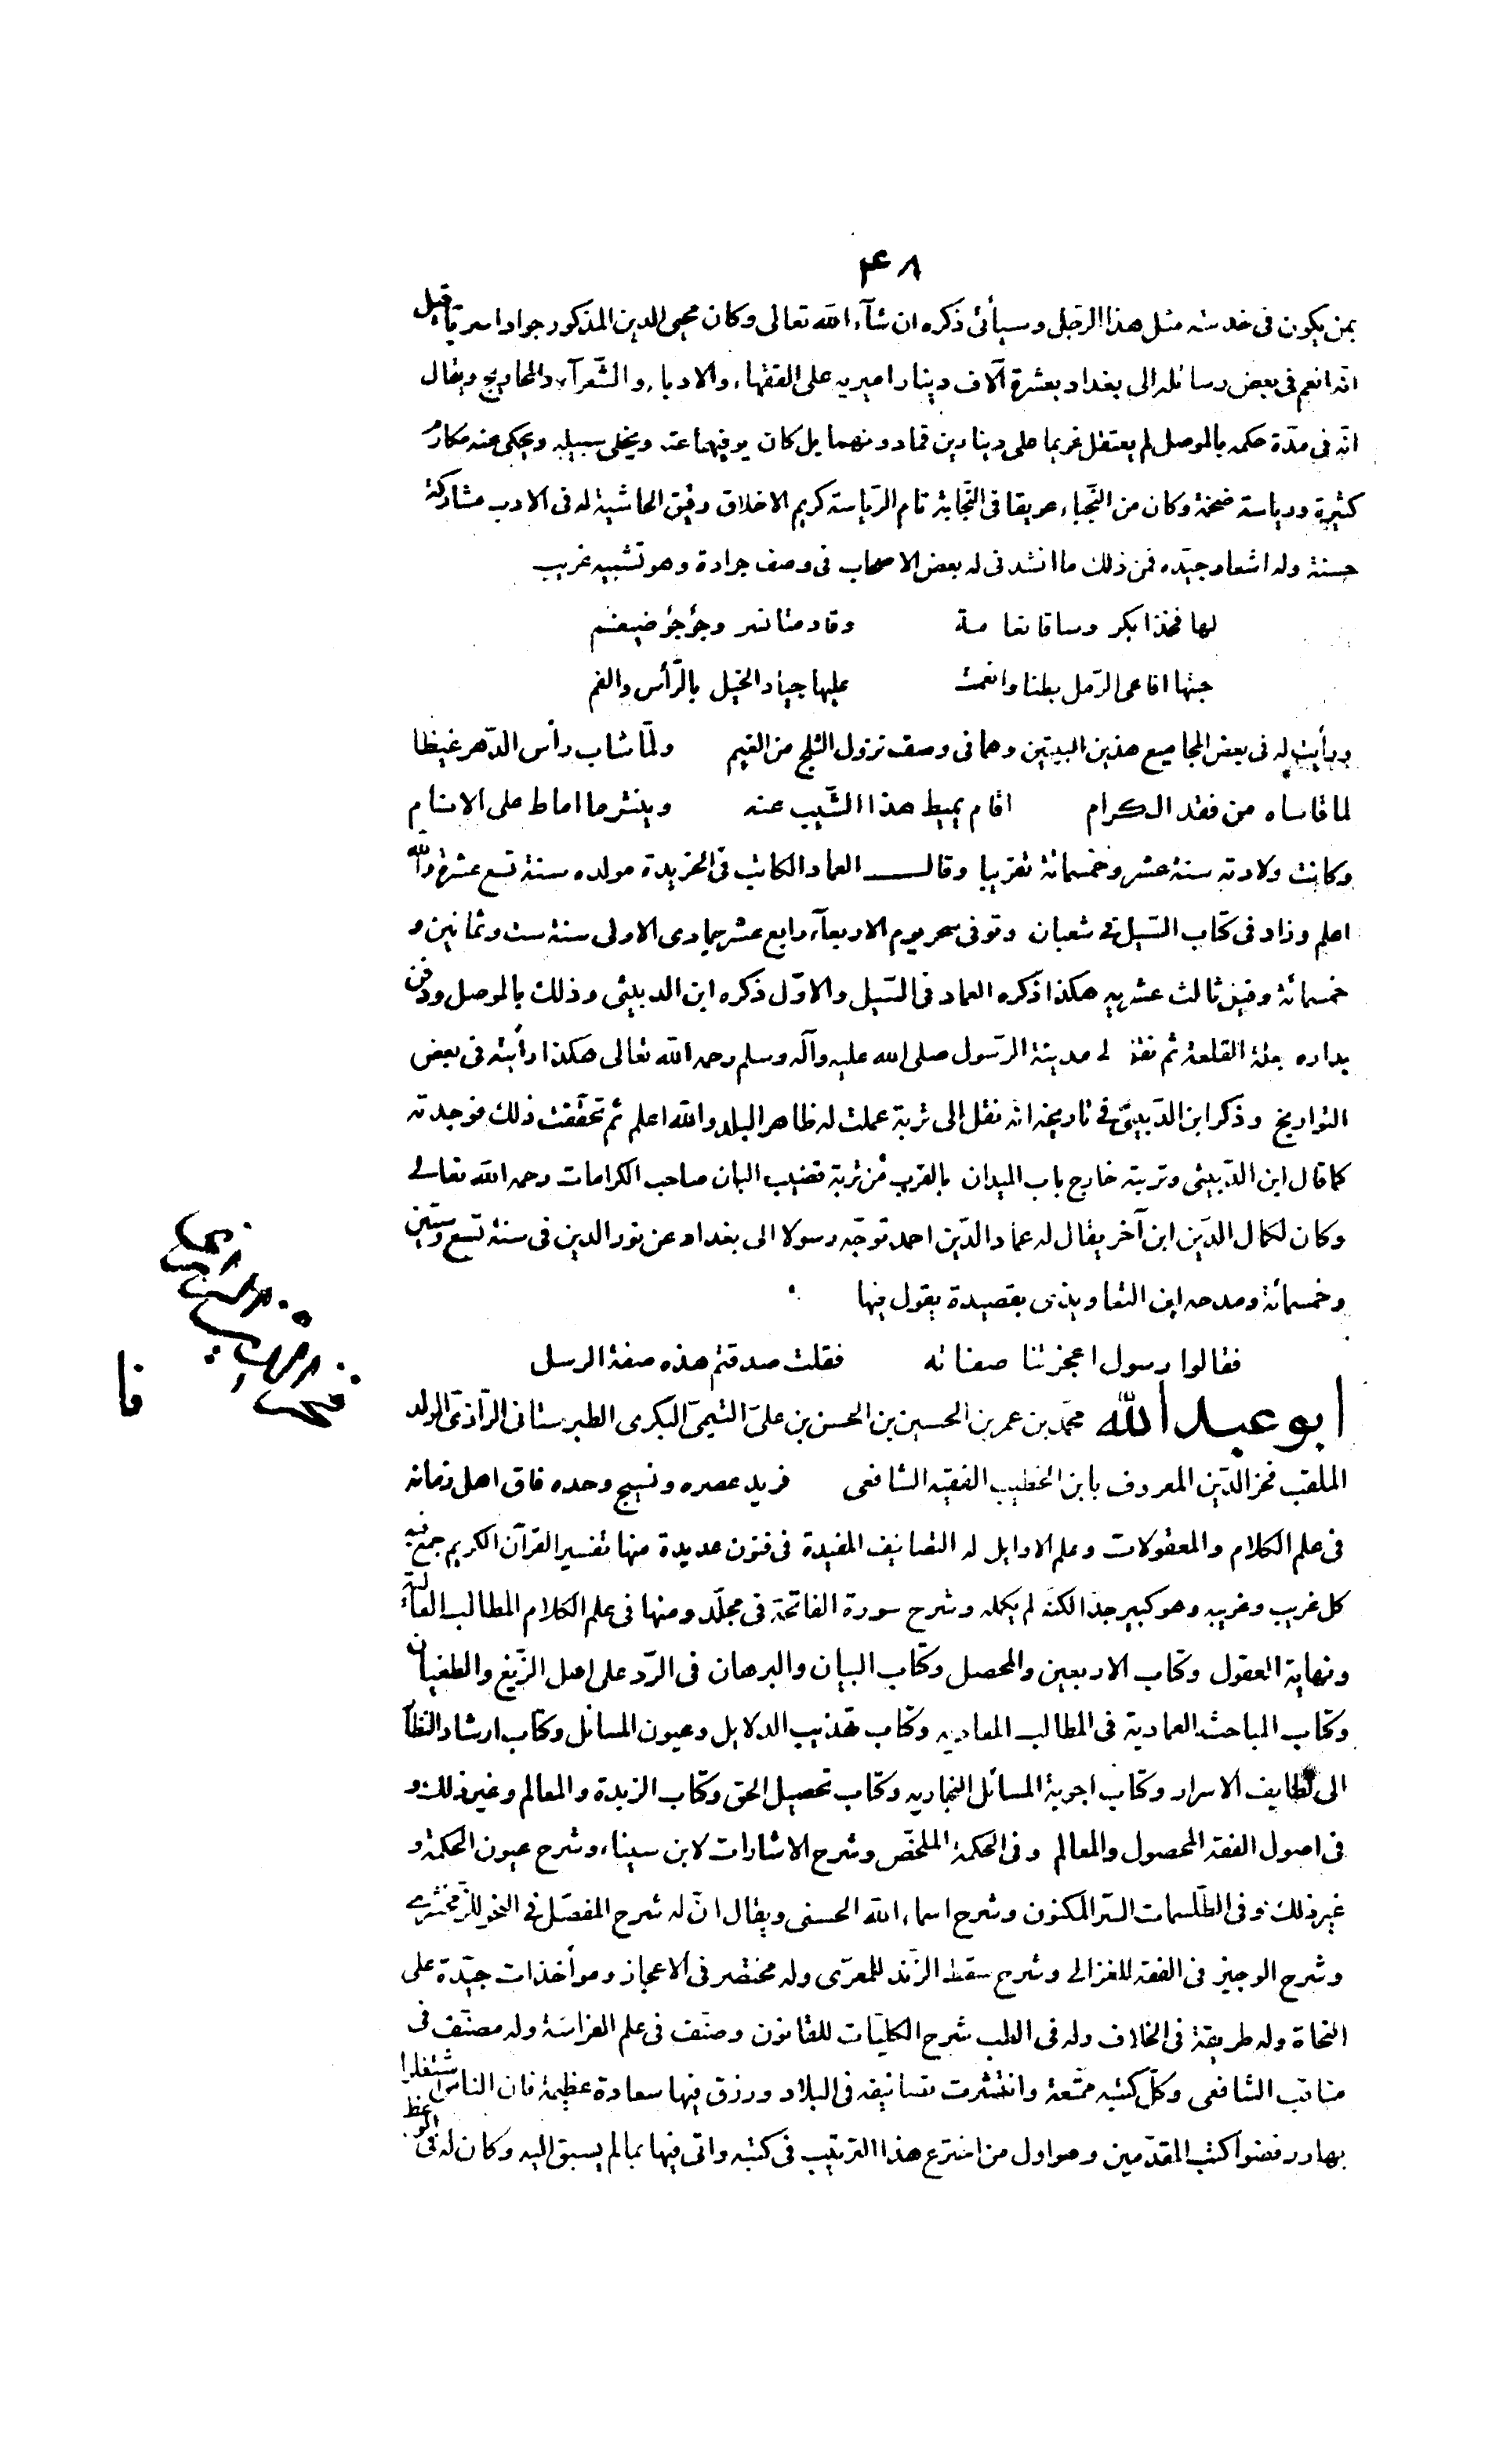 ۴۸
بمن يكون فى خدمته مثل هذا الرجل وسيأتى ذكره ان شآء الله تعالى وكان محيى الدين المذكور جوادا سريا قيل
انّه انعم فى بعض رسائله الى بغداد بعشرة آلاف دينار اميريه على الفقهاء والادباء والشّعرآء والمحاويج ويقال
انّه فى مدّة حكمه بالموصل لم يعتقل غريما على دينارين فمادونهما بل كان يوفيهما عنه ويخلى سبيله ويحكى عنه مكارم
كثيرة ورياسة ضخمة وكان من النّجباء عريقا فى النّجابة تام الرّياسة كريم الاخلاق رقيق الحاشية له فى الادب مشاركة
حسنة وله اشعار جيّده فمن ذلك ما انشدنى له بعض الاصحاب فى وصف جرادة وهو تشبيه غريب
لها فخذا بكر وساقا نعامة وقادمتا نسر وجؤجؤ ضيغم
حبتها افاعى الرّمل بطنا وانعمت عليها جياد الخيل بالرّأس والفم
ورأيت له فى بعض المجاميع هذين البيتين وهما فى وصف نزول الثلج من الغيم ولمّا شاب رأس الدّهر غيظا
لما قاساه من فقد الكرام اقام يميط هذا الشّيب عنه وينثر ما اماط على الانام
وكانت ولادته سنة عشر وخمسمائة تقريبا وقال العماد الكاتب فى الخريدة مولده سنة تسع عشرة والله
اعلم وزاد فى كتاب السّيل فى شعبان وتوفى سحر يوم الاربعآء رابع عشر جمادى الاولى سنة ست وثمانين و
خمسمائة وقيل ثالث عشريه هكذا ذكره العماد فى السّيل والاوّل ذكره ابن الدبيثى وذلك بالموصل ودفن
بداره القلعة ثم نقل الى مدينة الرّسول صلى الله عليه وآله وسلم رحمه الله تعالى هكذا رأيته فى بعض
التواريخ وذكر ابن الدّبيثىّ فى تاريخه انه نقل الى تربة عملت له ظاهر البلد والله اعلم ثم تحقّقت ذلك فوجدته
كما قال ابن الدّبيثى وتربته خارج باب الميدان بالقرب من تربة قضيب البان صاحب الكرامات رحمه الله تعالى
وكان لكمال الدّين ابن آخر يقال له عماد الدّين احمد توجّه رسولا الى بغداد عن نور الدين فى سنة تسع وستّين
وخمسمائة ومدحه ابن التعاويذى بقصيدة يقول فيها
فقالوا رسول اعجزتنا صفاته فقلت صدقتم هذه صفة الرسل
ابو عبد الله محمّد بن عمر بن الحسين بن الحسن بن علىّ التيمىّ البكرى الطبرستانى الرّازىّ المولد
الملقب فخر الدّين المعروف بابن الخطيب الفقيه الشافعى فريد عصره ونسيج وحده فاق اهل زمانه
فى علم الكلام والمعقولات وعلم الاوايل له التصانيف المفيدة فى فنون عديدة منها تفسير القرآن الكريم جمع فيه
كل غريب وغريبه وهو كبير جدّا لكنّه لم يكمله وشرح سورة الفاتحة فى مجلّد ومنها فى علم الكلام المطالب العالية
ونهاية العقول وكتاب الاربعين والمحصل وكتاب البيان والبرهان فى الرّد على اهل الزّيغ والطغيان
وكتاب المباحث العمادية فى المطالب المعاديه وكتاب تهذيب الدلايل وعيون المسائل وكتاب ارشاد النظآ
الى لطايف الاسرار وكتاب اجوبة المسائل النجاريه وكتاب تحصيل الحق وكتاب الزبدة والمعالم وغير ذلك و
فى اصول الفقه المحصول والمعالم وفى الحكمة الملخّص وشرح الاشارات لابن سيناء وشرح عيون الحكمة و
غير ذلك وفى الطّلسمات السّر المكنون وشرح اسماء الله الحسنى ويقال انّ له شرح المفصّل فى النحو للزّمخشرى
وشرح الوجيز فى الفقه للغزالى وشرح سقط الزّند للمعرّى وله مختصر فى الاعجاز ومواخذات جيّدة على
النحاة وله طريقة فى الخلاف وله فى الطب شرح الكليّات للقانون وصنّف فى علم الفراسة وله مصنّف فى
مناقب الشافعى وكلّ كتبه ممتّعة وانتشرت تصانيفه فى البلاد ورزق فيها سعادة عظيمة فان الناس اشتغلوا
بها ورفضوا كتب المتقدّمين وهو اول من اخترع هذا الترتيب فى كتبه واتى فيها بما لم يسبق اليه وكان له فى الوعظ
فا